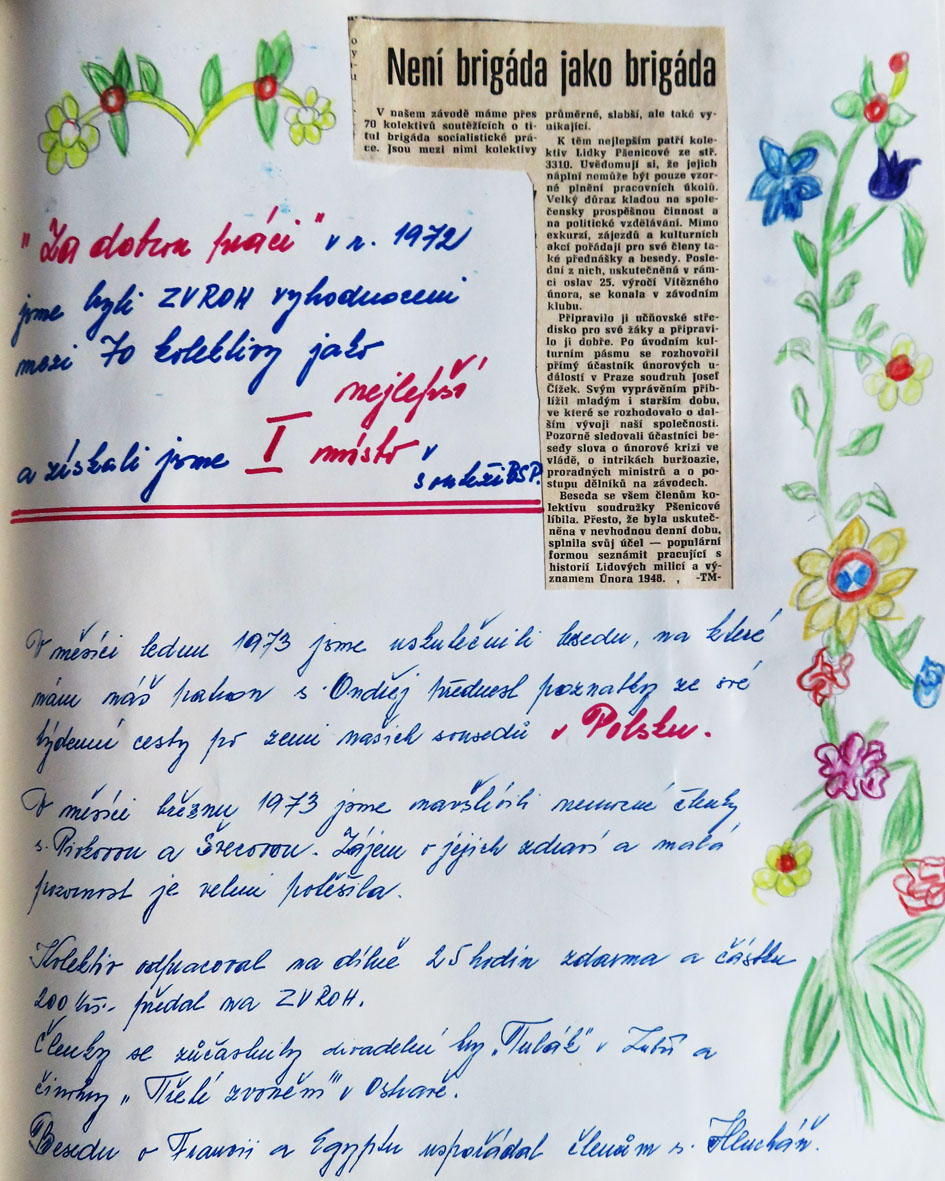 Není brigáda jako brigáda
V našem závodě máme přes
70 kolektivů soutěžících o ti-
tul brigáda socialistické prá-
ce. Jsou mezi nimi kolektivy
průměrné, slabší, ale také vy-
nikající.
K těm nejlepším patří kole-
ktiv Lidky Pšenicové ze stř.
3310. Uvědomují si, že jejich
náplní nemůže být pouze vzor-
né plnění pracovních úkolů.
Velký důraz kladou na spole-
čensky prospěšnou činnost a
na politické vzdělávání. Mimo
exkurzí, zájezdů a kulturních
akcí pořádají pro své členy ta-
ké přednášky a besedy. Posle-
dní z nich, uskutečněná v rám-
ci oslav 25. výročí Vítězného
února, se konala v závodním
klubu.
Připravilo ji učňovské stře-
disko pro své žáky a připravi-
lo ji dobře. Po úvodním kul-
turním pásmu se rozhovořil
přímý účastník únorových u-
dálostí v Praze soudruh Josef
Čížek. Svým vyprávěním přib-
lížil mladým i starším dobu,
ve které se rozhodovalo o dal-
ším vývoji naší společnosti.
Pozorně sledovali účastníci be-
sedy slova o únorové krizi ve
vládě, o intrikách buržoazie,
proradných ministrů a o po-
stupu dělníků na závodech.
Beseda se všem členům ko-
lektivu soudružky Pšenicové
líbila. Přesto, že byla uskuteč-
něna v nevhodnou denní dobu,
splnila svůj účel — populární
formou seznámit pracující s
historií Lidových milicí a vý-
znamem Února 1948. -TM-
"Za dobrou práci" v r. 1972
jsme byli ZVROH vyhodnoceni
mezi 70 kolektivy jako
nejlepší
a získali jsme I místo v
soutěži BSP.
V měsíci lednu 1973 jsme uskutečnili besedu, na které
nám náš patron s. Ondřej přednesl poznatky ze své
týdenní cesty po zemi našich sousedů v Polsku.
V měsíci březnu 1973 jsme navštívili nemocné členky
s. Pirkovou a Švecovou. Zájem o jejich zdraví a malá
pozornost je velmi potěšila.
Kolektiv odpracoval na dílně 25 hodin zdarma a částku
200 Kčs.- předal na ZVROH.
Členky se zůčastnily divadelní hry „Tulák" v a
činohry „Třetí zvonění" v Ostravě.
Besedu o Francii a Egyptu uspořádal členům s. Hlucháň.